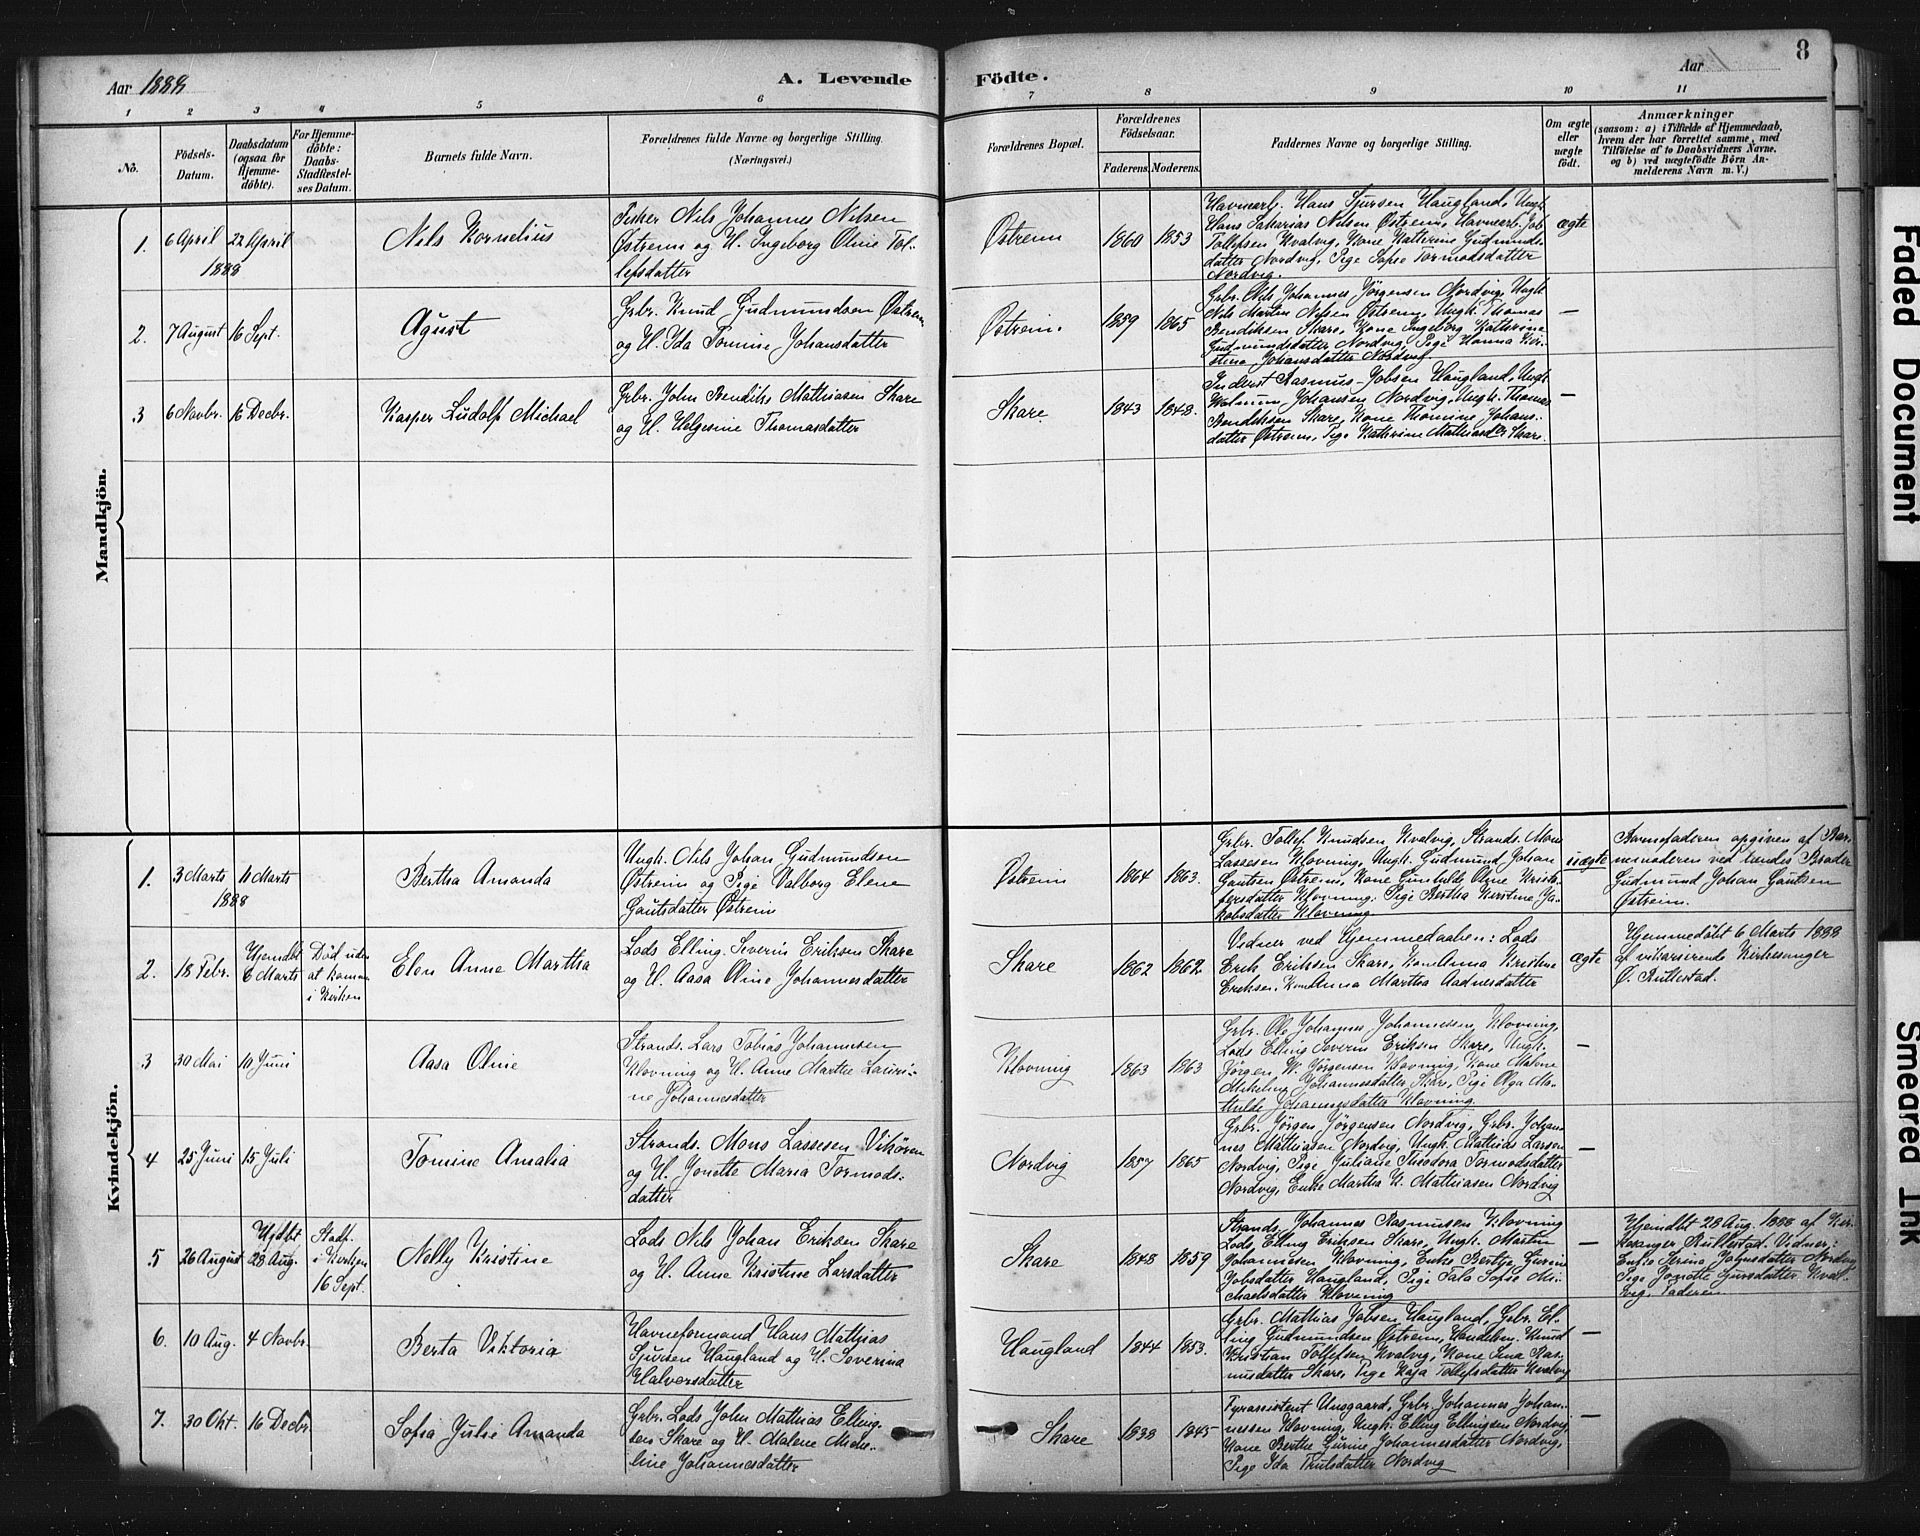 Aar 1888
A. Levende
Födte.
Aar
8
1 2 3 4 5 6 7 8 9 10 11
No.
Födsels-
Datum.
Daabsdatum
(ogsaa for
Hjemme-
döbte).
For Hjemme-
döbte:
Daabs-
Stadfæstel-
ses Datum.
Barnets fulde Navn.
Forældrenes fulde Navne og borgerlige Stilling.
(Næringsvei.)
Forældrenes Bopæl.
Forældrenes
Födselsaar.
Faderens.
Moderens.
Faddernes Navne og borgerlige Stilling.
Om ægte
eller
uægte
födt.
Anmærkninger
(saasom: a) i Tilfælde af Hjemmedaab,
hvem der har forrettet samme, med
Tilföielse af to Daabsvidners Navne.
og b) ved uægtefödte Börn An-
melderens Navn m. V.)
Mandkjön.
1. 6 April 22 April
1888
Nils Kornelius
Fisker Nils Johannes Nilsen
Østrem og H. Ingeborg Oline Tol-
lefsdatter
Østrem
1860 1853
Havnearb. Hans Sjursen Haugland, Ungk.
Hans Sakarias Nilsen Østrem, Havnearb. Job
Tollefsen Kvalvig, Kone Kathrine Gudmunds-
datter Nordvig, Pige Sofie Tormodsdatter
Nordvig.
ægte
2. 7 August 16 Sept.
Agust
Grbr. Knud Gudmundsen Østrem
og H. Ida Tomine Johansdatter
Østrem.
1859 1865
Grbr. Nils Johannes Jörgensen Nordvig, Ungk.
Nils Martin Nilsen Østrem, Ungk. Thomas
Bendiksen Skare, Kone Ingeborg Kathrine
Gudmundsdatter Nordvig, Pige Hanna Kri-
stine Johansdatter Nordvig.
—
3 6 Novbr. 16 Decbr.
Kasper Ludolf Michael
Grbr. John Bendiks Mathiasen Skare
og H. Helgesine Thomasdatter
Skare.
1843 1848.
Inderst Rasmus Jobsen Haugland, Ungk.
Johansen Nordvig, Ungk. Thomas
Bendiksen Skare, Kone Thomine Johans-
datter Østrem, Pige Kathrine Mathiasdtr Skare.
—
Kvindekjön.
1. 3 Marts 11 Marts
1888
Bertha Amanda
Ungk. Nils Johan Gudmundsen
Østrem og Pige Valborg Elene
Gautsdatter Østrem
Østrem
1864 1863.
Grbr. Tollef Knudsen Kvalvig, Strands. Mons
Lassesen Klovning, Ungk. Gudmund Johan
Gautsen Østrem, Kone Gunhilde Oline Kristo-
fersdatter Klovning, Pige Bertha Kirstine Ja-
kobsdatter Klovning
uægte
Barnefaderen opgiven af Bar-
nemoderen ved hendes Broder
Gudmund Johan Gautsen
Østrem.
2. 18 Febr. Hjemdbt
6 Marts
Död uden
at komme
i Kirken
Elen Anne Martha
Lods Elling Severin Eriksen Skare
og H. Aasa Oline Johannesdatter
Skare
1862 1862.
Vidner ved Hjemmedaaben: Lods
Erik Eriksen Skare, Kone Anna Kristine
Eriksen, Kone Anna Martha Aadnesdatter
ægte
Hjemmedöbt 6 Marts 1888
af vikarierende Kirkesanger
Ø. Rullestad.
3 30 Mai 10 Juni
Aasa Oline
Strands. Lars Tobias Johannesen
Klovning og H. Anne Marthe Lauri-
ne Johannesdatter
Klovning
1863 1863
Grbr. Ole Johannes Johannesen, Klovning,
Lods Elling Severin Eriksen Skare, Ungk.
Jörgen W. Jörgensen Klovning, Kone Malene
Mikeline Johannesdatter Skare, Pige Olga Ma-
thilde Johannesdatter Klovning
—
4 25 Juni 15 Juli
Tomine Amalia
Strands. Mons Lassesen Vikören
og H. Jonette Maria Tormods-
datter
Nordvig
1857 1865
Grbr. Jörgen Jörgensen Nordvig, Grbr. Johan-
nes Mathiasen Nordvig, Ungk. Mathias Larsen
Nordvig, Pige Juliane Theodora Tormodsdatter
Nordvig, Enke Martha K. Mathiasen Nordvig
—
5 26 August Hjdbt
28 Aug.
Stadf.
i Kirken
16 Sept.
Nelly Kristine
Lods Nils Johan Eriksen Skare
og H. Anne Kristine Larsdatter
Skare
1848 1859
Strands. Johannes Rasmusen Klovning
Lods Elling Eriksen Skare, Ungk. Martin
Johannesen Klovning, Enke Berthe Gurine
Jobsdatter Haugland, Pige Tala Sofie Mi-
chaelsdatter Klovning
—
Hjemdbt 28 Aug. 1888 af Kir-
kesanger Rullestad. Vidner:
Enke Serine Johnsdatter Nordvig
Pige Jonette Sjursdatter Kval-
vig, Faderen
6. 10 Aug. 4 Novbr.
Berta Viktoria
Havneformand Hans Mathias
Sjursen Haugland og H. Severina
Halversdatter
Haugland
1844 1853.
Grbr. Mathias Jobsen Haugland, Grbr. El-
ling Gudmundsen Østrem, Handelsm. Knud
Kristian Tollefsen Kvalvig, Kone Lina Ras-
musdatter Skare, Pige Kaja Tollefsdatter Kvalvig
—
7. 30 Okt. 16 Decbr.
Sofia Julie Amanda
Grbr. Lods John Mathias Elling-
sen Skare og H. Malene Mike-
line Johannesdatter
Skare
1838 1845
Fyrassistent Ansgaard, Grbr. Johannes Johan-
nessen Klovning, Ungk. Elling Ellingsen Nordvig,
Kone Berthe Gurine Johannesdatter Nordvig,
Pige Ida Thulsdatter Nordvig
—
Faded Document
Smeared Ink